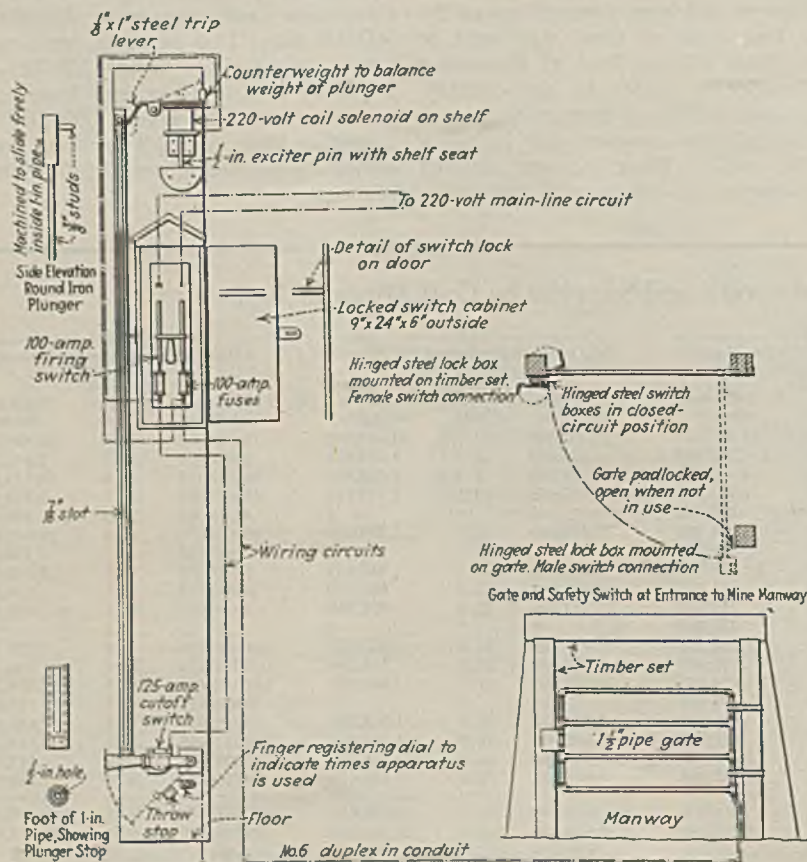 1/8" x 1" steel trip
lever
Counterweight to balance
weight of plunger
220-volt coil solenoid on shelf
1/2-in. exciter pin with shelf seat
Machined to slide freely
inside 1-in. pipe
studs
Side Elevation
Round Iron
Plunger
To 220-volt main-line circuit
Detail of switch lock
on door
Locked switch cabinet
9"x 24"x 6" outside
100-amp.
firing
switch
100-amp.
fuses
Hinged steel lock box
mounted on timber set.
Female switch connection
Hinged steel switch
boxes in closed-
circuit position
Gate padlocked,
open when not
in use
Hinged steel lock box mounted
on gate. Male switch connection
Gate and Safety Switch at Entrance to Mine Manway
slot
Wiring circuits
125-amp.
cutoff
switch
Finger registering dial to
indicate times apparatus
is used
-in. hole
Foot of 1-in.
Pipe, Showing
Plunger Stop
Throw
stop
Floor
No.6 duplex in conduit
Timber set
1 1/2" pipe gate
Manway